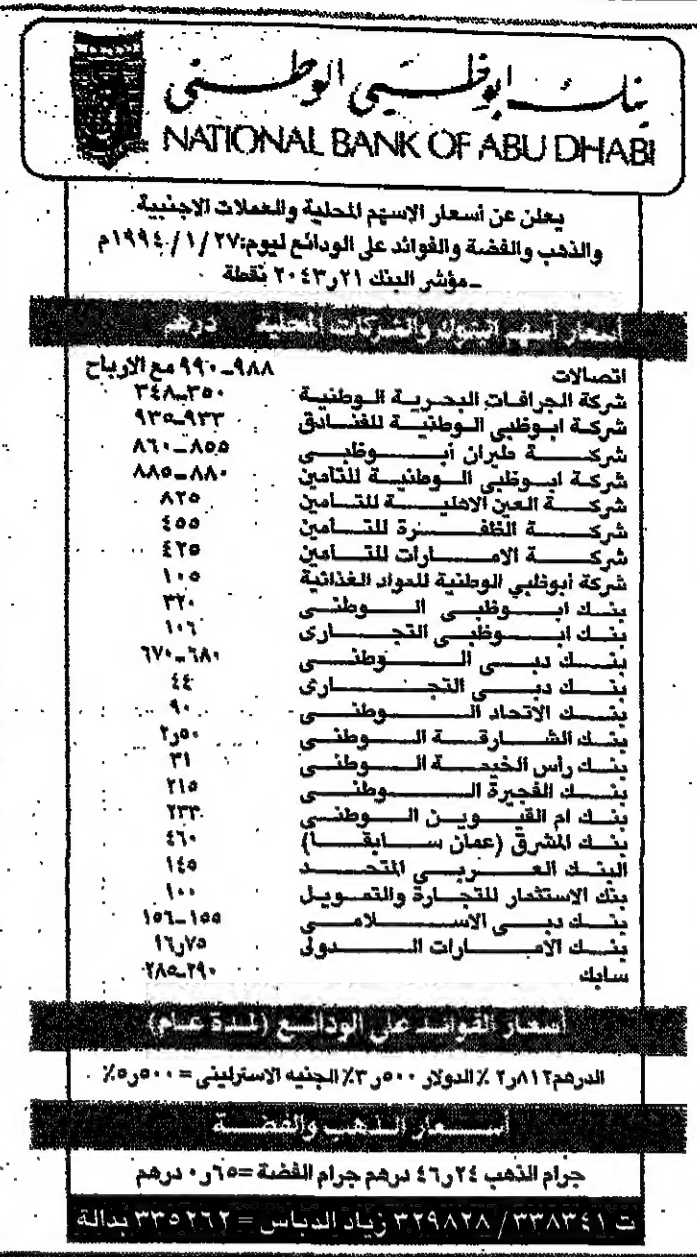 بنك ابوظبي الوطني
NATIONAL BANK OF ABU DHABI
يعلن عن أسعار الاسهم المحلية والعملات الاجنبية
والذهب والفضة والفوائد على الودائع ليوم: ٢٧ / ١ / ١٩٩٤م
ـ مؤشر البنك ٢١ر٢٠٤٣ نقطة
أسعار أسهم البنوك والشركات المحلية درهم
اتصالات ٩٨٨ــ٩٩٠ مع الارباح
شركة الجرافات البحرية الوطنية ٣٥٠ــ٣٤٨
شركة ابوظبي الوطنية للفنادق ٩٣٣ــ٩٣٥
شركة طيران أبوظبي ٨٥٥ــ٨٦٠
شركة ابوظبي الوطنية للتأمين ٨٨٠ــ٨٨٥
شركة العين الاهلية للتأمين ٨٢٥
شركة الظفرة للتأمين ٤٥٥
شركة الامارات للتأمين ٤٢٥
شركة أبوظبي الوطنية للمواد الغذائية ١٠٥
بنك ابوظبي الوطني ٣٢٠
بنك ابوظبي التجاري ١٠٦
بنك دبي الوطني ٦٨٠ــ٦٧٠
بنك دبي التجاري ٤٤
بنك الاتحاد الوطني ٩٠
بنك الشارقة الوطني ٥٠ر٢
بنك رأس الخيمة الوطني ٣١
بنك الفجيرة الوطني ٢١٥
بنك ام القيوين الوطني ٢٣٣
بنك المشرق (عمان سابقا) ٤٦٠
البنك العربي المتحد ١٤٥
بنك الاستثمار للتجارة والتمويل ١٠٠
بنك دبي الاسلامي ١٥٥ــ١٥٦
بنك الامارات الدولي ٧٥ر٩٦
سابك ٢٩٠ــ٢٨٥
أسعار الفوائد على الودائع (لمدة عام)
الدرهم ٨١٢ر٢ ٪ الدولار ٥٠٠ر٣٪ الجنيه الاسترليني = ٥٠٠ر٥٪
أسعار الذهب والفضة
جرام الذهب ٢٤ر٤٦ درهم جرام الفضة =٦٥ر٠ درهم
ت ٣٣٨٣٤١ / ٣٢٩٨٢٨ زياد الدباس = ٣٣٥٢٦٢ بدالة